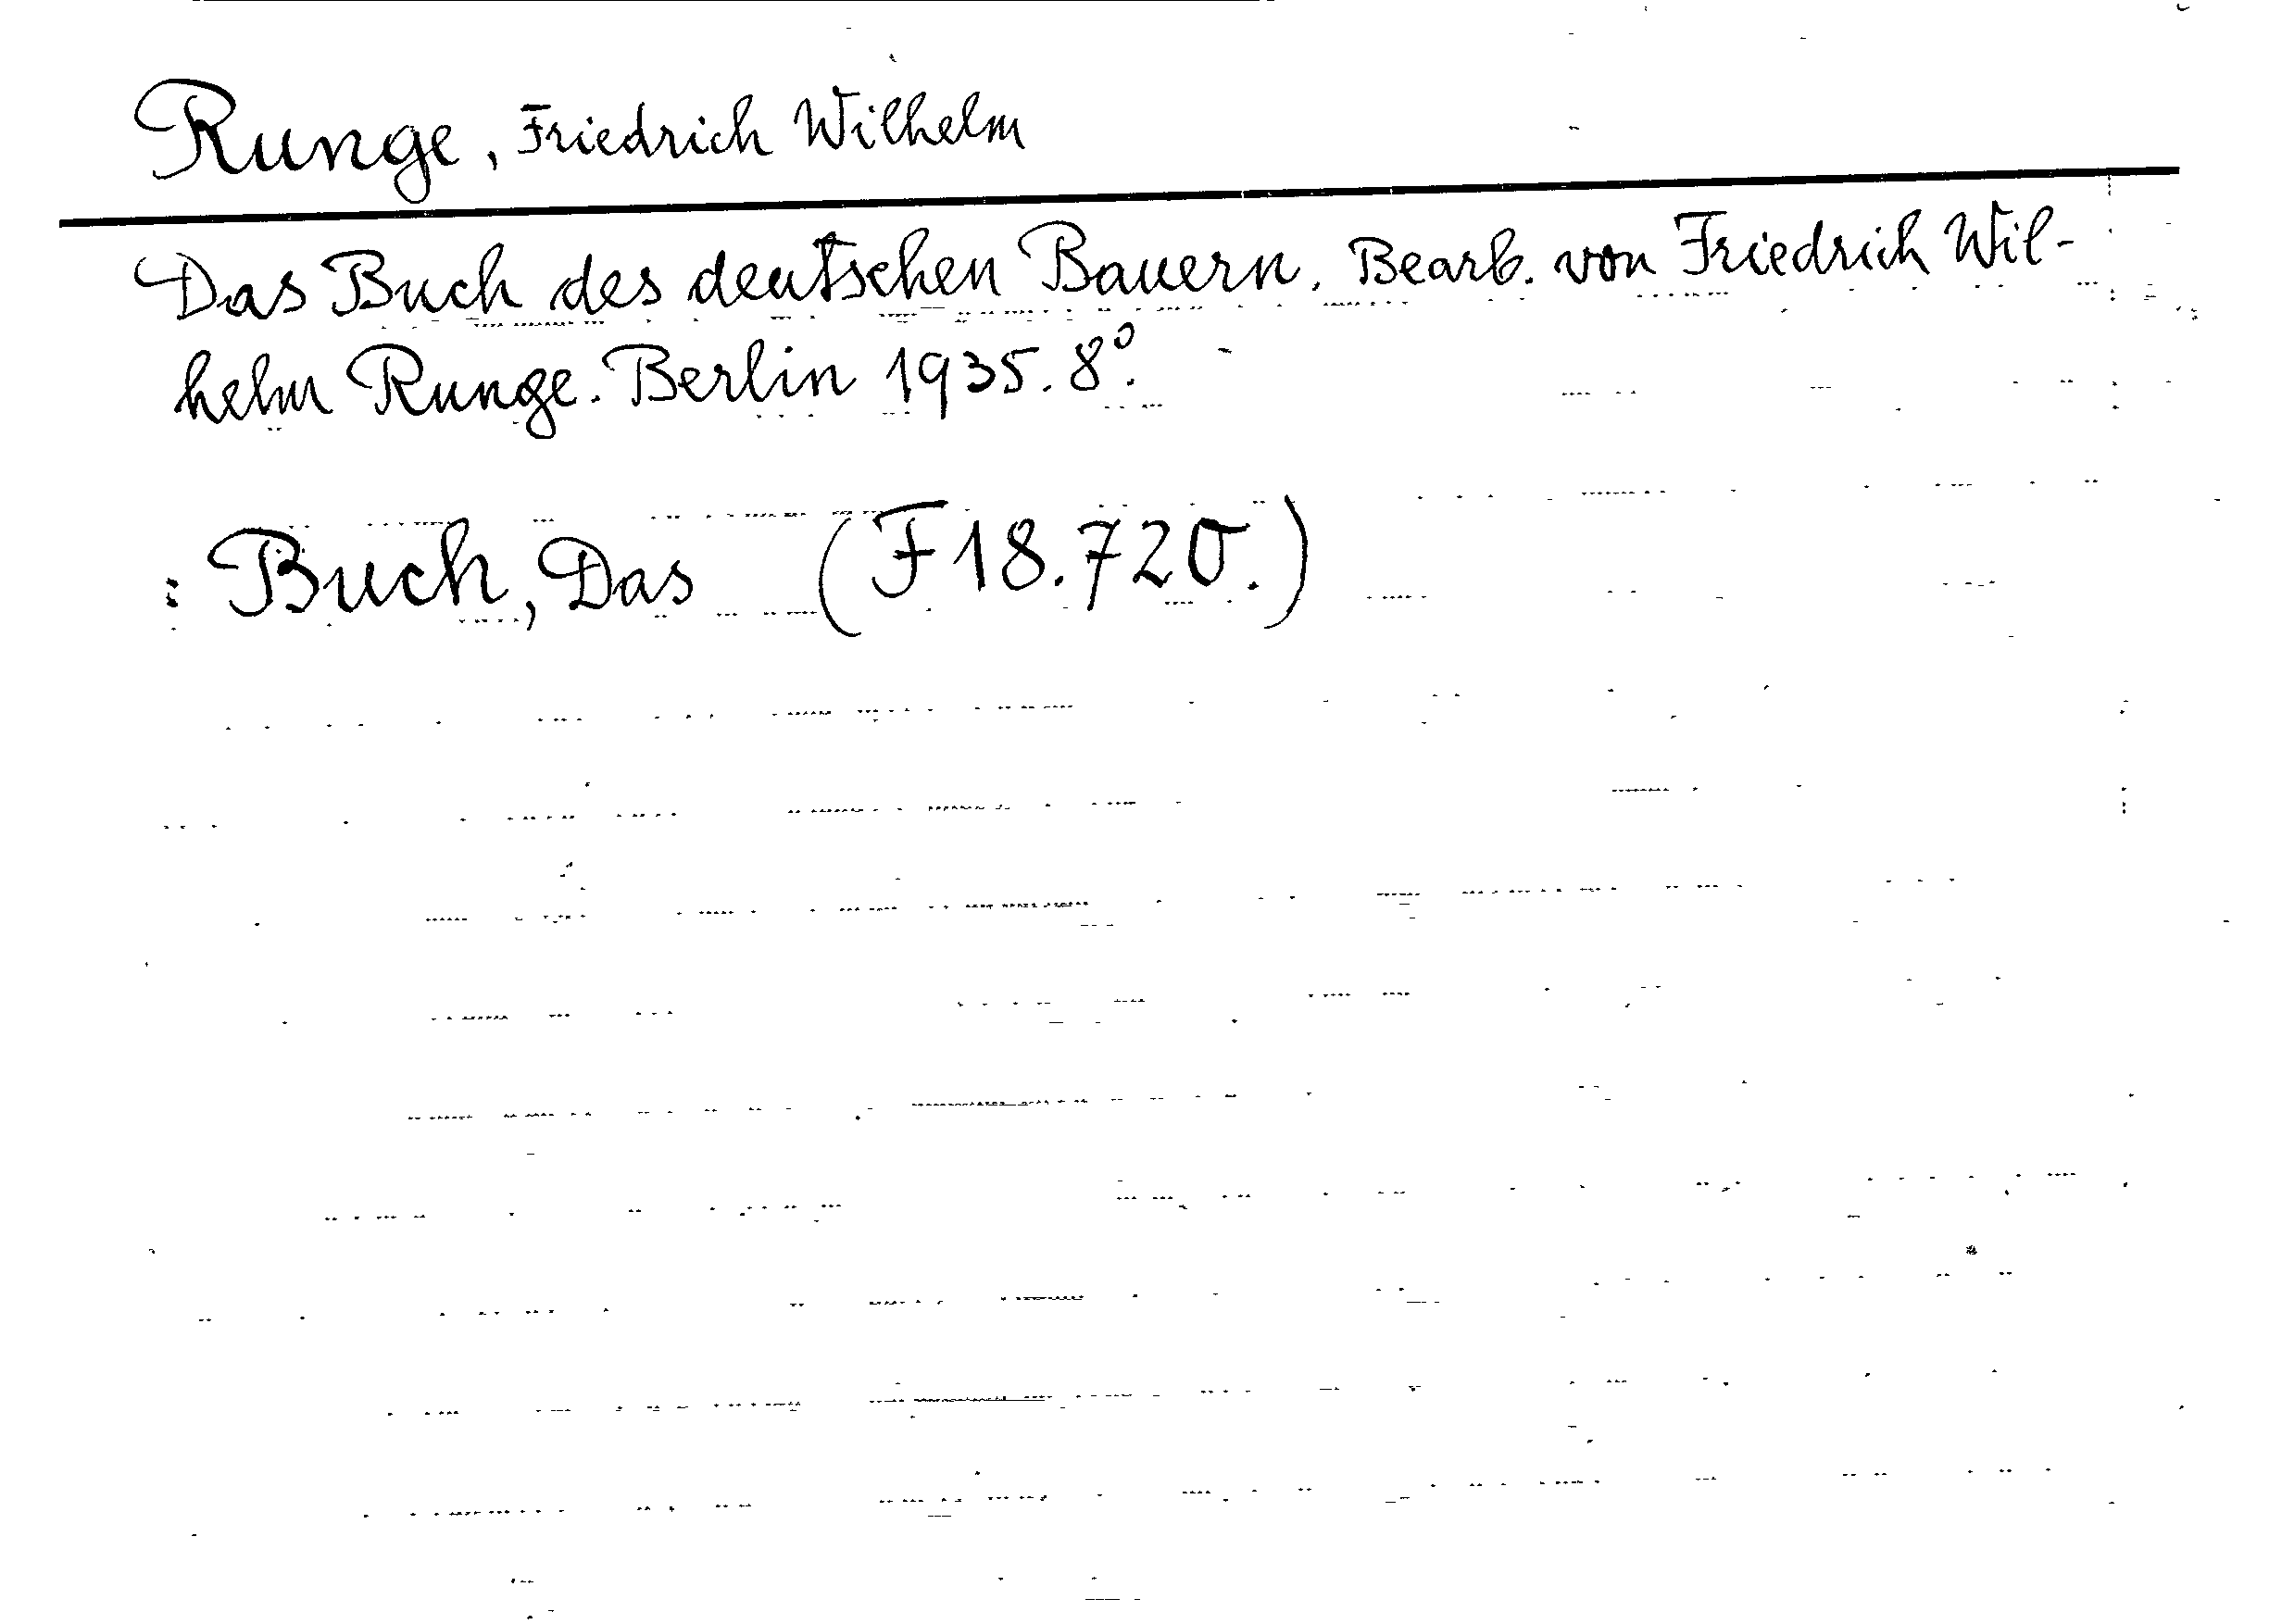 Runge, Friedrich Wilhelm
Das Buch des deutschen Bauern. Bearb. von Friedrich Wil-
helm Runge. Berlin 1935. 8°.
: Buch, Das (F 18.720.)